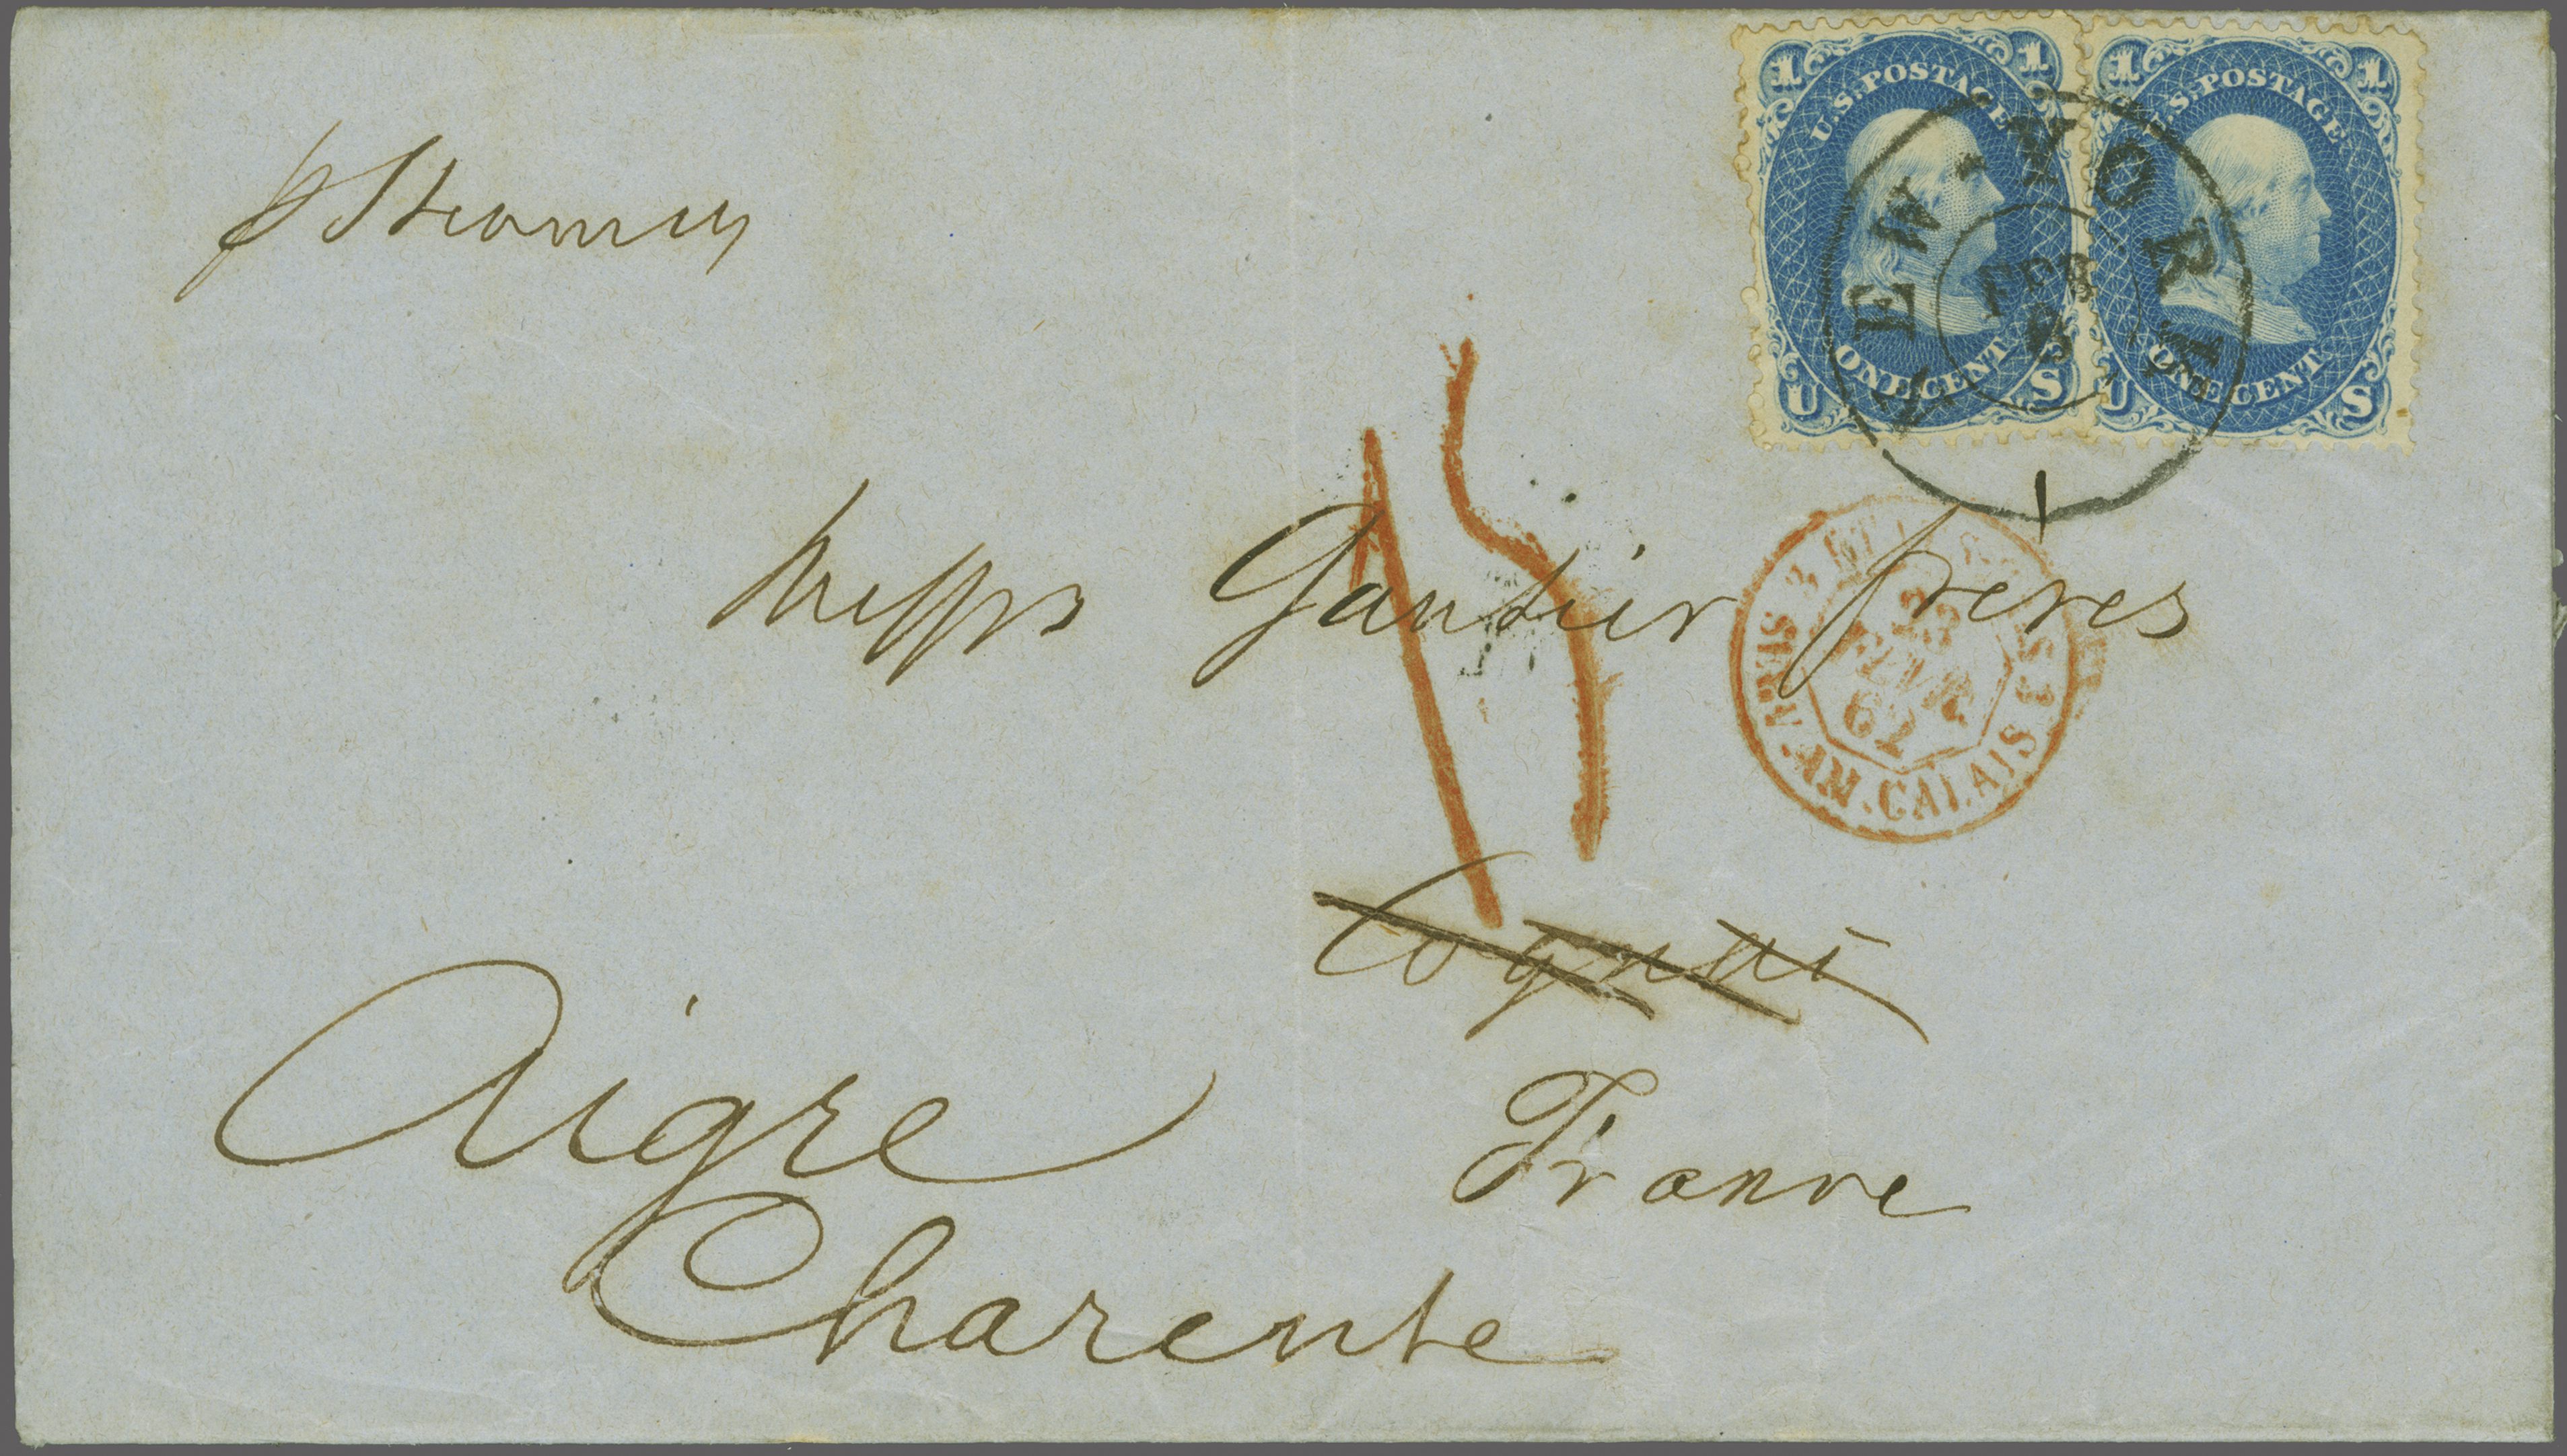 p Steamer
1 U.S. POSTAGE 1
ONE CENT
U S
1 U.S. POSTAGE 1
ONE CENT
U S
NEW-YORK
FEB
Messrs Gautier frères
23
FEVR.
62
AM. CALAIS
15
Cognac
France
Aigre
Charente